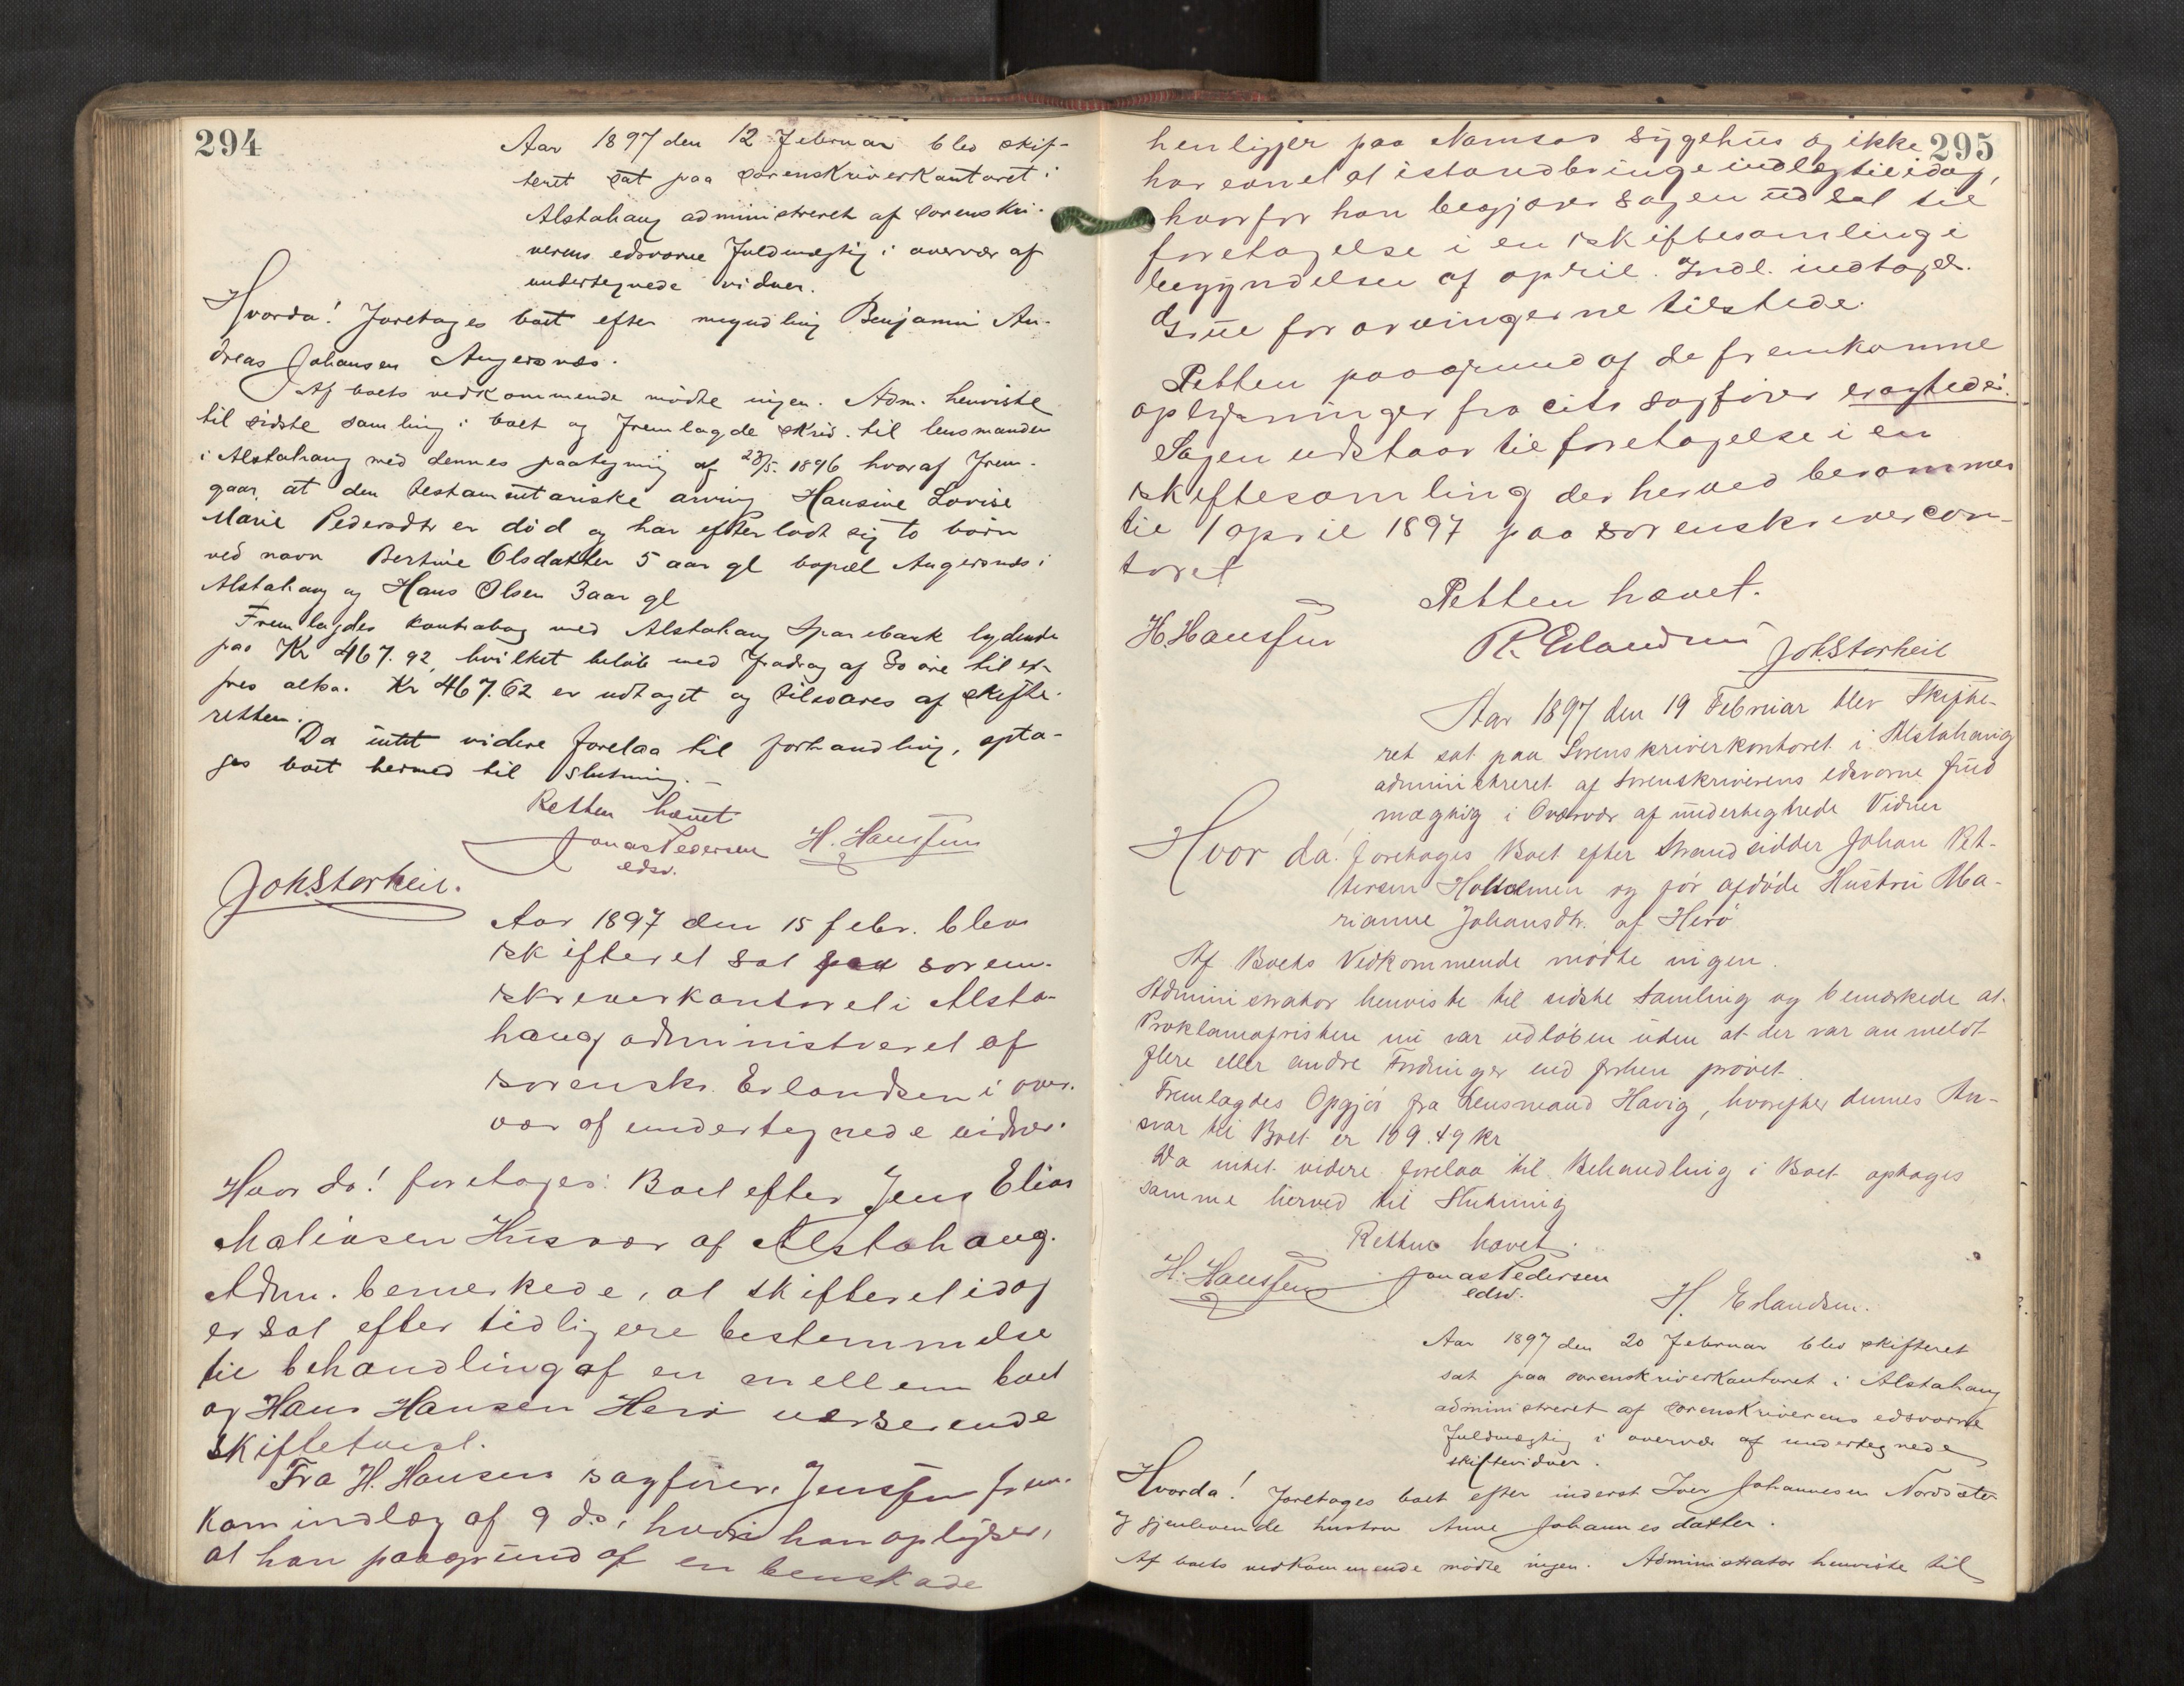 294
Aar 1897 den 12 Februar blev skif-
teret sat paa sorenskriverkontoret i
Alstahaug administreret af sorenskri-
verens edsvorne Fuldmægtig i overvær af
undertegnede vidner.
Hvorda! Foretoges boet efter myndling Benjamin An-
dreas Johansen Angersnes.
Af boets vedkommende mødte ingen. Adm. henviste
til sidste samling i boet og fremlagde skriv. til lensmanden
i Alstahaug med dennes paategning af 23/5. 1896 hvoraf frem-
gaar, at den testamentariske arving Hansine Lovise
Marie Pedersdtr er död og har efterladt sig to börn
ved navn Bertine Olsdatter 5 aar gl bopæl Angersnes i
Alstahaug og Hans Olsen 3 aar gl
Fremlagdes kontrabog med Alstahaug Sparebank lydende
paa Kr 467.92, hvilket belöb med fradrag af 30 öre til ex-
pres altsa. Kr 467.62 er udtaget og tilsvares af skifte-
retten.
Da intet videre forelaa til forhandling, opta-
ges boet hermed til slutning.-
Retten hævet
Jonas Pedersen H. Hanssen
edsv.
Joh. Storheil.
Aar 1897 den 15 febr. blev
skifteret sat paa soren-
skriverkontoret i Alsta-
haug administreret af
sorenskr. Erlandsen i over-
vær af undertegnede vidner.
Hvor da! foretoges: Boet efter Jens Elias
Maliasen Husvær af Alstahaug.
Adm. bemerkede, at skifteret idag
er sat efter tidligere bestemmelse
til behandling af en mellem boet
og Hans Hansen Herö verserende
skiftetvist.
Fra H. Hansens sagförer, Jenssen frem-
kom indlæg af 9 ds, hvori han oplyser,
at han paagrund af en benskade
295
henligger paa Namsos sygehus og ikke
har evnet at istandbringe indlæg til idag,
hvorfor han begjærer sagen udsat til
foretagelse i en skiftesamling i
begyndelsen af april. Indl. indtages.
Grue for arvingerne tilstede.
Retten paagrund af de fremkomne
oplysninger fra cits sagförer eragtede:
Sagen udstaar til foretagelse i en
skiftesamling der herved berammes
til 1 april 1897 paa sorenskrivercon-
toret
Retten hævet.
H. Hanssen R. Erlandsen Joh. Storheil
Aar 1897 den 19 Februar blev Skifte-
ret sat paa Sorenskriverkontoret i Alstahaug
administreret af Sorenskriverens edsvorne Fuld
mægtig i Overvær af undertegnede Vidner
Hvor da. foretoges Boet efter Strandsidder Johan Pet-
tersen Holtholmen og før afdøde Hustru Ma-
rianne Johansdtr. af Herø
Af Boets Vedkommende mødte ingen.
Administrator henviste til sidste Samling og bemærkede at
Proklamafristen nu var udløben uden at der var anmeldt
flere eller andre Fordringer end forhen prøvet.
Fremlagdes Opgjør fra Lensmand Havig, hvorefter dennes An-
svar til Boet er 109.49 kr
Da intet videre forelaa til Behandling i Boet optoges
samme herved til Slutning
Retten hævet.
H. Hanssen Jonas Pedersen
edsv.
H. Erlandsen.
Aar 1897 den 20 Februar blev skifteret
sat paa sorenskriverkontoret i Alstahaug
administreret af sorenskriverens edsvorne
Fuldmægtig i overvær af undertegnede
skiftevidner.
Hvorda! Foretoges boet efter inderst Iver Johannesen Nordsæter
og gjenlevende hustru Anne Johannesdatter.
Af boets vedkommende mödte ingen. Administrator henviste til